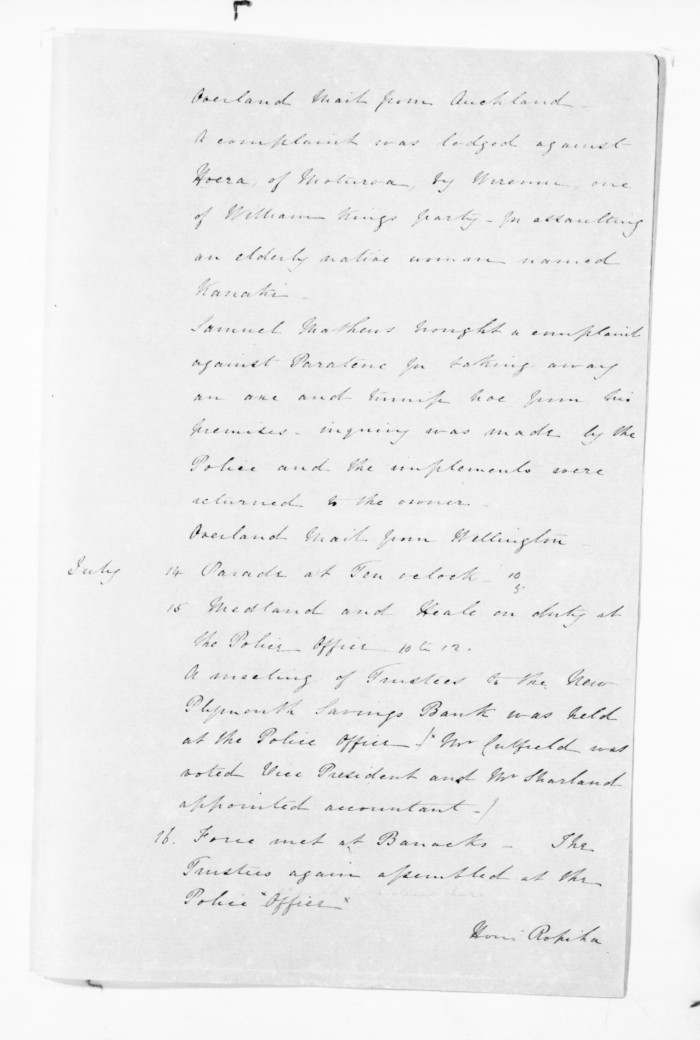 Overland Mail from Auckland -
A complaint was lodged against
Hoera, of Moturoa, by Wiremu, one
of William Kings party - for assaulting
an elderly native woman named
Kanaki -
Samuel Mathews brought a complaint
against Paratene for taking away
an axe and turnip hoe from his
premises - inquiry was made by the
Police and the implements were
returned to the owner -
Overland Mail from Wellington -
July 14 Parade at Ten oclock - 10
15 Medland and Heale on duty at
the Police Office 10 to 12.
A meeting of Trustees to the New
Plymouth Savings Bank was held
at the Police Office - (Mr Cutfield was
voted Vice President and Mr Sharland
appointed accountant -)
16. Force met at Barracks - The
Trustees again assembled at the
Police "Office"
Honi Ropiha